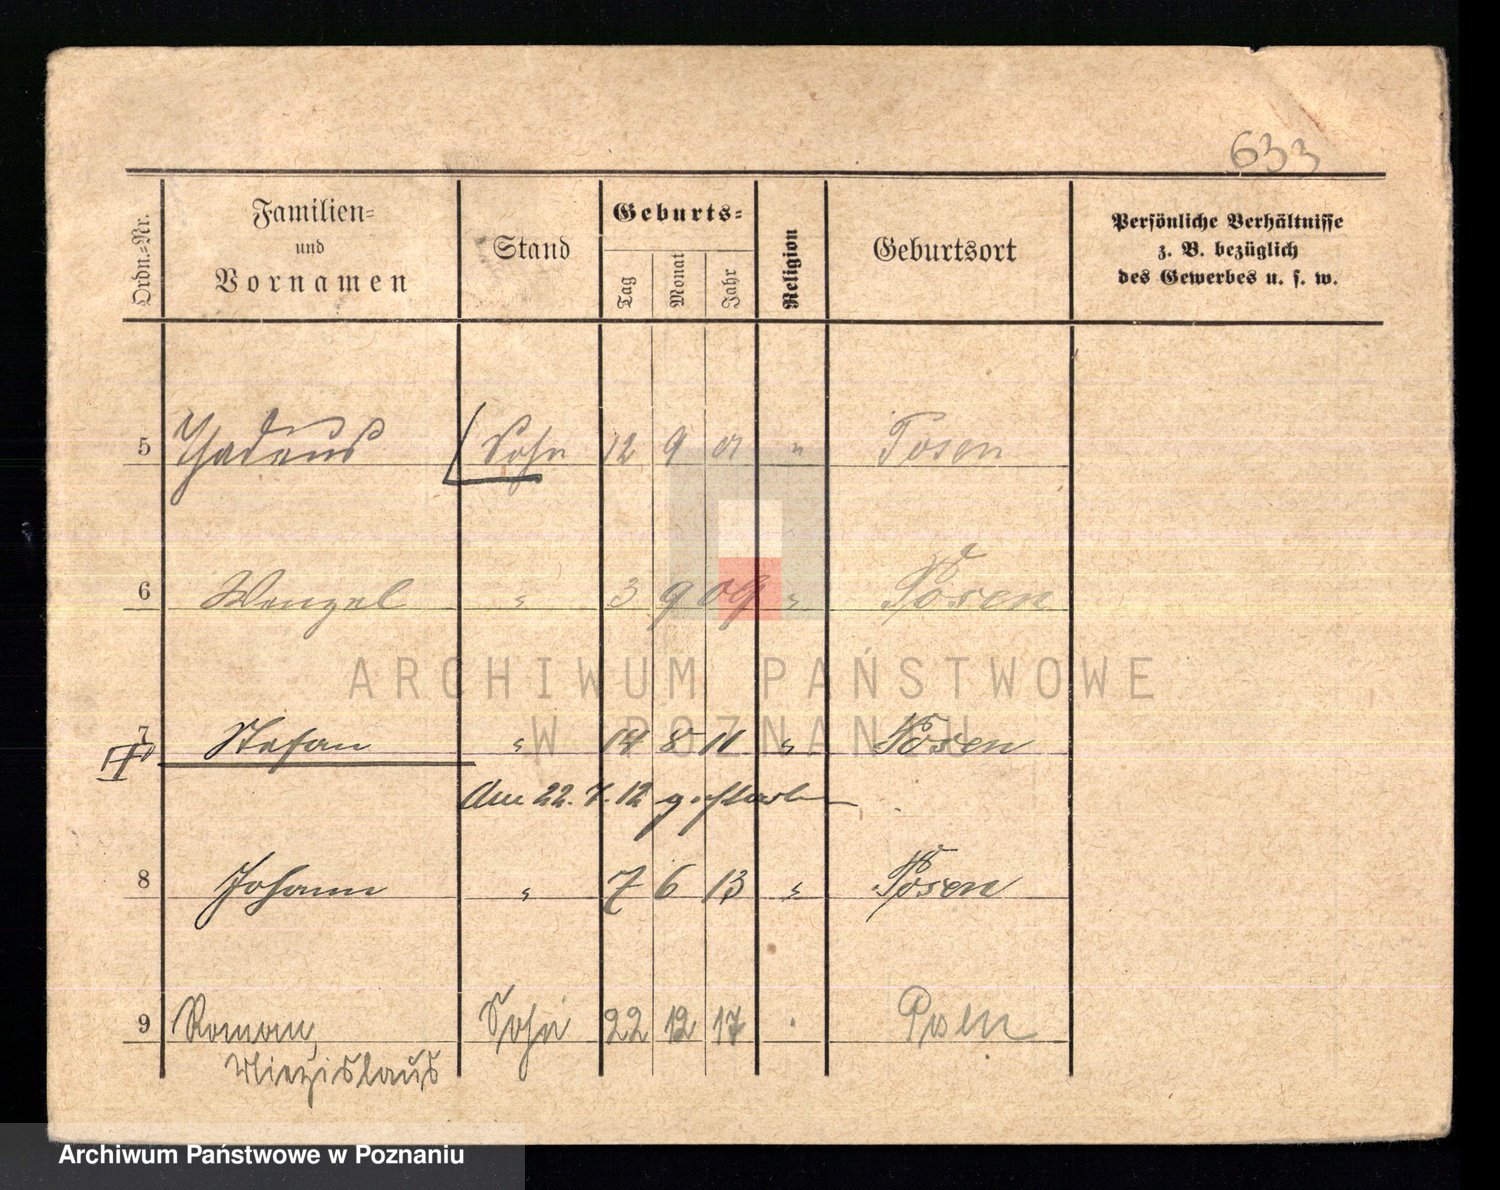 633
Ordn.-Nr.
Familien-
und
Vornamen
Stand
Geburts-
Tag
Monat
Jahr
Religion
Geburtsort
Persönliche Verhältnisse
z. B. bezüglich
des Gewerbes u. s. w.
5 Thadeus Sohn 12 9 01 " Posen
6 Wenzel " 3 9 09 " Posen
ARCHIWUM PAŃSTWOWE
W POZNANIU
7 Stefan " 14 8 11 " Posen
Am 22. 7. 12 gestorben
8 Johann " 7 6 13 " Posen
9 Roman, Sohn 22 12 17 " Posen
Miezislaus
Archiwum Państwowe w Poznaniu